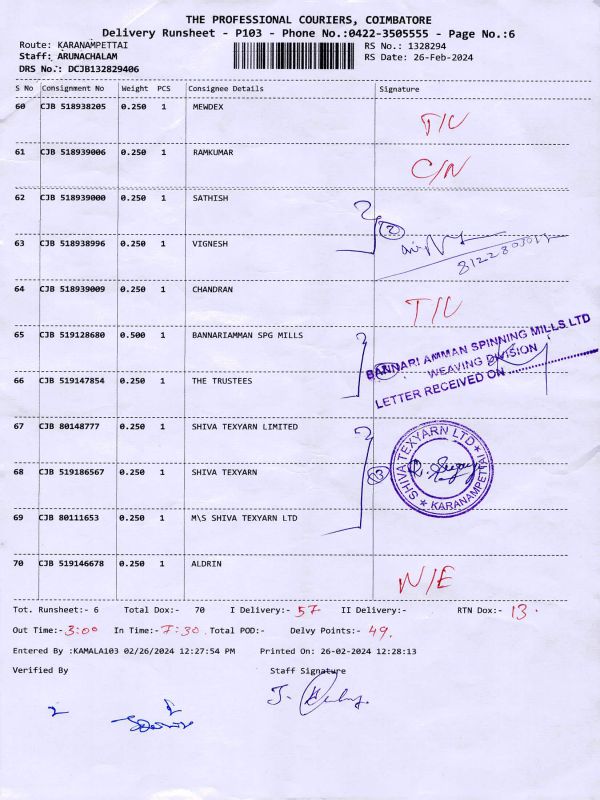 THE PROFESSIONAL COURIERS, COIMBATORE
Delivery Runsheet - P103 - Phone No.:0422-3505555 - Page No.:6
Route: KARANAMPETTAI RS No.: 1328294
Staff: ARUNACHALAM RS Date: 26-Feb-2024
DRS No.: DCJB132829406
S No Consignment No Weight PCS Consignee Details Signature
60 CJB 518938205 0.250 1 MEWDEX T/U
61 CJB 518939006 0.250 1 RAMKUMAR C/N
62 CJB 518939000 0.250 1 SATHISH
2
63 CJB 518938996 0.250 1 VIGNESH
64 CJB 518939009 0.250 1 CHANDRAN T/U
65 CJB 519128680 0.500 1 BANNARIAMMAN SPG MILLS
BANNARI AMMAN SPINNING MILLS LTD
WEAVING DIVISION
66 CJB 519147854 0.250 1 THE TRUSTEES
LETTER RECEIVED ON
67 CJB 80148777 0.250 1 SHIVA TEXYARN LIMITED
SHIVA TEXYARN LTD
68 CJB 519186567 0.250 1 SHIVA TEXYARN
★ KARANAMPETTAI ★
69 CJB 80111653 0.250 1 M\S SHIVA TEXYARN LTD
70 CJB 519146678 0.250 1 ALDRIN N/E
Tot. Runsheet:- 6 Total Dox:- 70 I Delivery:- 57 II Delivery:- RTN Dox:- 13.
Out Time:- 3:00 In Time:- 7:30. Total POD:- Delvy Points:- 49.
Entered By :KAMALA103 02/26/2024 12:27:54 PM Printed On: 26-02-2024 12:28:13
Verified By Staff Signature